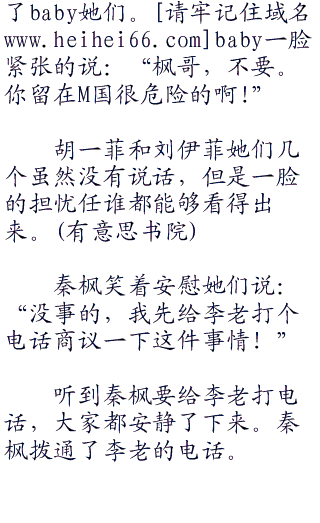 了baby她们。[请牢记住域名
www.heihei66.com]baby一脸
紧张的说：“枫哥，不要。
你留在M国很危险的啊!”
胡一菲和刘伊菲她们几
个虽然没有说话，但是一脸
的担忧任谁都能够看得出
来。(有意思书院)
秦枫笑着安慰她们说：
“没事的，我先给李老打个
电话商议一下这件事情！”
听到秦枫要给李老打电
话，大家都安静了下来。秦
枫拨通了李老的电话。